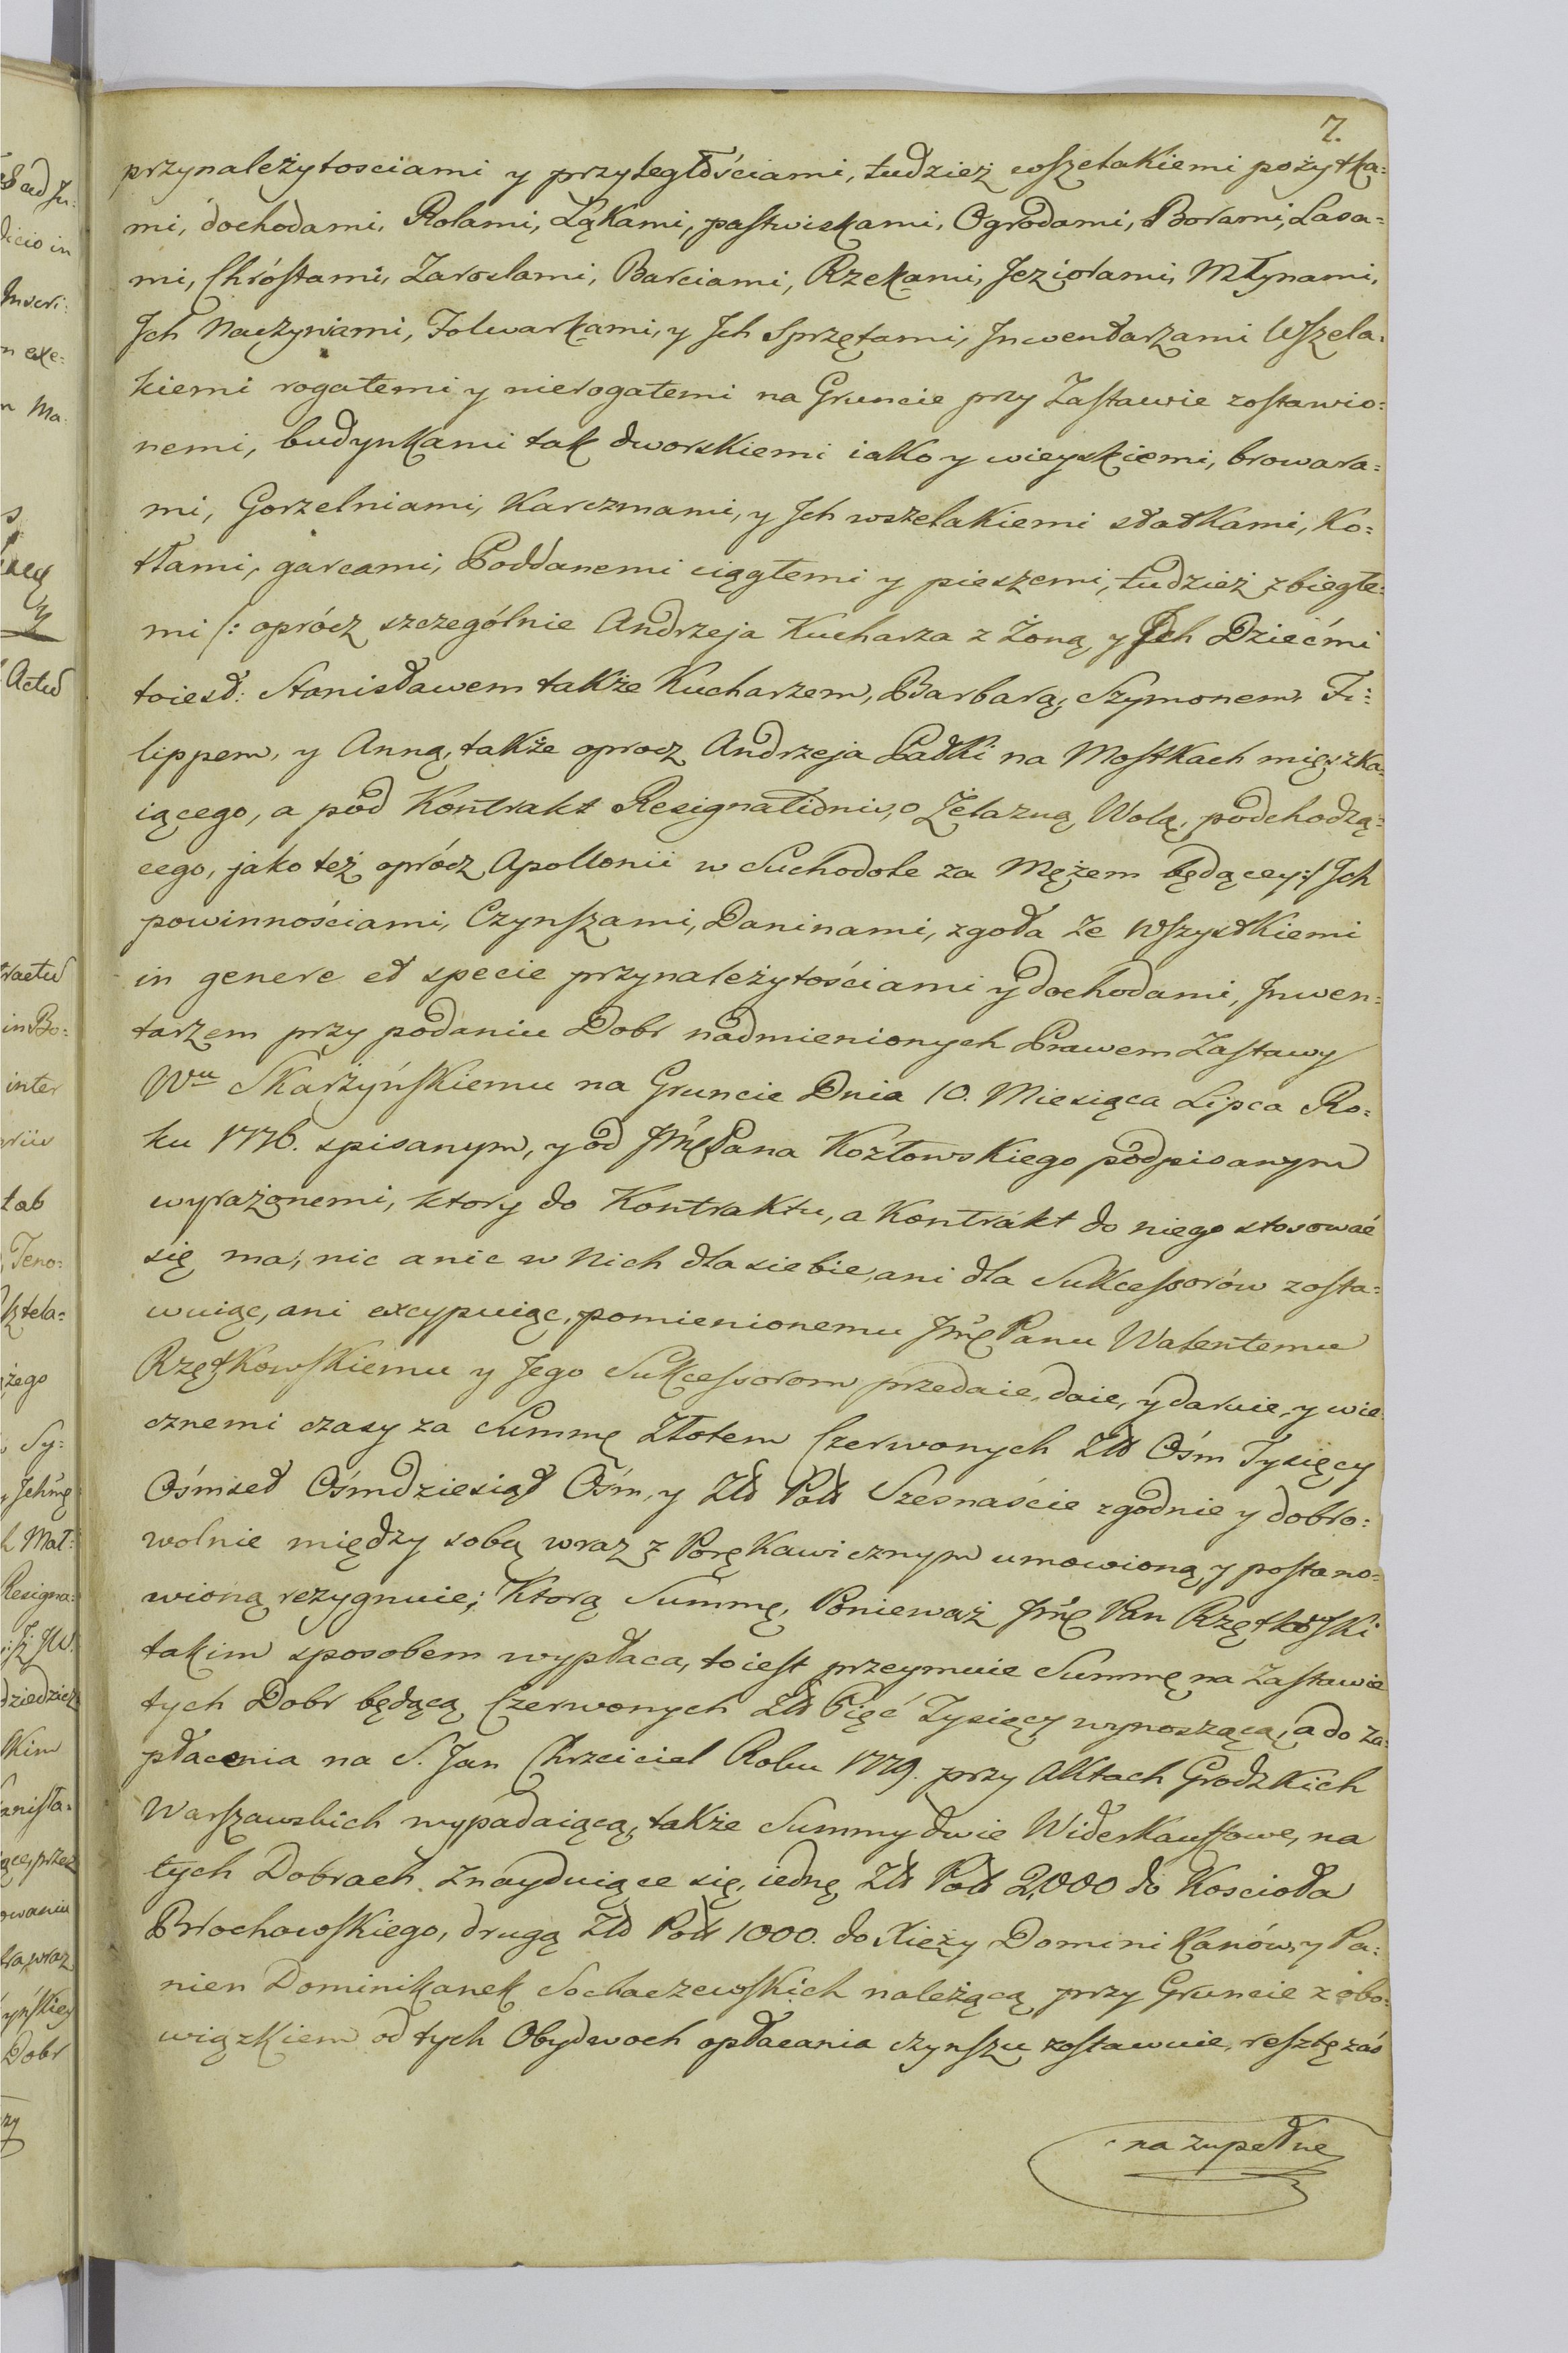 7.
przynależytosciami y przyległościami, tudzież wszelakiemi pożytka=
mi, dochodami, Rolami, Łąkami, pastwiskami, Ogrodami, Borami, Lasa=
mi, Chróstami, Zaroslami, Barciami, Rzekami, Jeziorami, Młynami,
Jch Naczyniami, Folwarkami, y Jch Sprzętami, Jnwentarzami Wszela=
kiemi rogatemi y nierogatemi na Gruncie przy Zastawie zostawio=
nemi, budynkami tak dworskiemi iako y wieyskiemi, browara=
mi, Gorzelniami, Karczmami, y Jch wszelakiemi statkami, Ko=
tłami, garcami, Poddanemi ciągłemi y pieszemi, tudzież zbiegłe=
mi /: oprócz szczególnie Andrzeja Kucharza z Żoną, y Jch Dziećmi
toiest: Stanisławem także Kucharzem, Barbarą, Szymonem, Fi=
lippem, y Anną, także oprocz Andrzeja Pałki na Mostkach mięszka=
iącego, a pod Kontrakt Resignationis, o Żelazną Wolą, podchodzą=
cego, jako też oprócz Apollonii w Suchodole za Mężem będącey :/ Jch
powinnościami, Czynszami, Daninami, zgoła ze Wszystkiemi
in genere et specie przynależytościami y dochodami, Jnwen=
tarzem przy podaniu Dobr nadmienionych Prawem Zastawy
Wu Skarżyńskiemu na Gruncie Dnia 10. Miesiąca Lipca Ro=
ku 1776. spisanym, y od Jmę Pana Kozłowskiego podpisanym
wyrażonemi, ktory do Kontraktu, a Kontrakt do niego stosować
się ma, nic a nic w Nich dla siebie, ani dla Sukcessorów zosta=
wuiąc, ani excypuiąc, pomienionemu Jmę Panu Walentemu
Rzętkowskiemu y Jego Sukcessorom przedaie, daie, y daruie, y wie
cznemi czasy za Summę Złotem Czerwonych Złł Ośm Tysięcy
Ośmset Ośmdziesiąt Ośm, y Złł Poll Szesnaście zgodnie y dobro=
wolnie między sobą wraz z Porękawicznym umowioną, y postano=
wioną rezygnuie; Ktorą Summę, Ponieważ Jmę Pan Rzętkowski
takim sposobem wypłaca, to iest przeymuie Summę na Zastawie
tych Dobr będącą Czerwonych Złł Pięć Tysięcy wynoszącą, a do za=
płacenia na S. Jan Chrzciciel Roku 1779. przy Aktach Grodzkich
Warszawskich wypadaiącą, także Summy dwie Widerkauffowe, na
tych Dobrach znayduiące się, iednę Złł Poll 2,000 do Kościoła
Brochowskiego, drugą Złł Poll 1000. do Xięży Dominikanów, y Pa=
nien Dominikanek Sochaczewskich należącą przy Gruncie z obo=
wiązkiem od tych Obydwoch opłacania czynszu zostawuie, resztę zaś
na zupełne